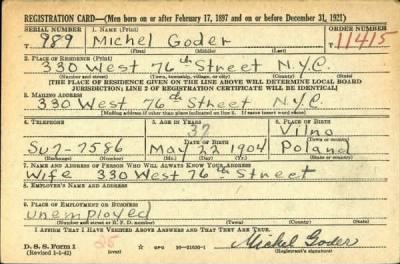 REGISTRATION CARD—(Men born on or after February 17, 1897 and on or before December 31, 1921)
SERIAL NUMBER 1. NAME (Print) ORDER NUMBER
T 989 Michel Goder 11415
(First) (Middle) (Last)
2. PLACE OF RESIDENCE (Print)
330 West 76th Street N.Y.C.
(Number and street) (Town, township, village, or city) (County) (State)
[THE PLACE OF RESIDENCE GIVEN ON THE LINE ABOVE WILL DETERMINE LOCAL BOARD JURISDICTION; LINE 2 OF REGISTRATION CERTIFICATE WILL BE IDENTICAL]
3. MAILING ADDRESS
330 West 76th Street N.Y.C.
[Mailing address if other than place indicated on line 2. If same insert word same]
4. TELEPHONE 5. AGE IN YEARS 6. PLACE OF BIRTH
37 Vilna
DATE OF BIRTH (Town or county)
SU7-7586 May 22 1904 Poland
(Exchange) (Number) (Mo.) (Day) (Yr.) (State or country)
7. NAME AND ADDRESS OF PERSON WHO WILL ALWAYS KNOW YOUR ADDRESS
Wife 330 West 76th Street
8. EMPLOYER'S NAME AND ADDRESS
9. PLACE OF EMPLOYMENT OR BUSINESS
unemployed
(Number and street or R. F. D. number) (Town) (County) (State)
I AFFIRM THAT I HAVE VERIFIED ABOVE ANSWERS AND THAT THEY ARE TRUE.
D. S. S. Form 1
(Revised 1-1-42) GPO 16-21630-1 Michel Goder
(Registrant's signature)